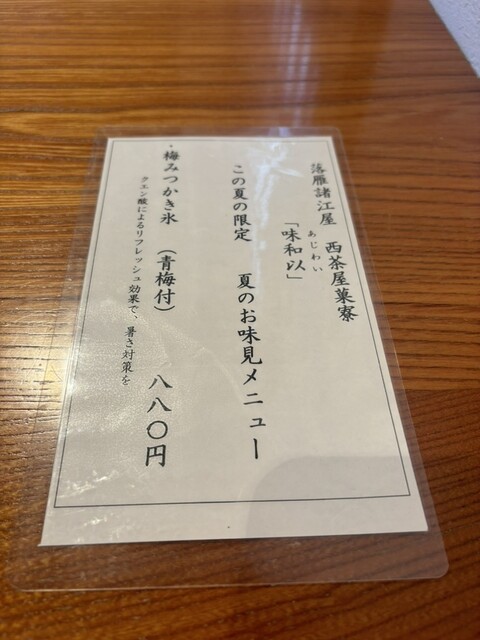 落雁諸江屋 西茶屋菓寮
あじわい
「味和以」
この夏の限定 夏のお味見メニュー
・梅みつかき氷 (青梅付) 八八〇円
クエン酸によるリフレッシュ効果で、暑さ対策を